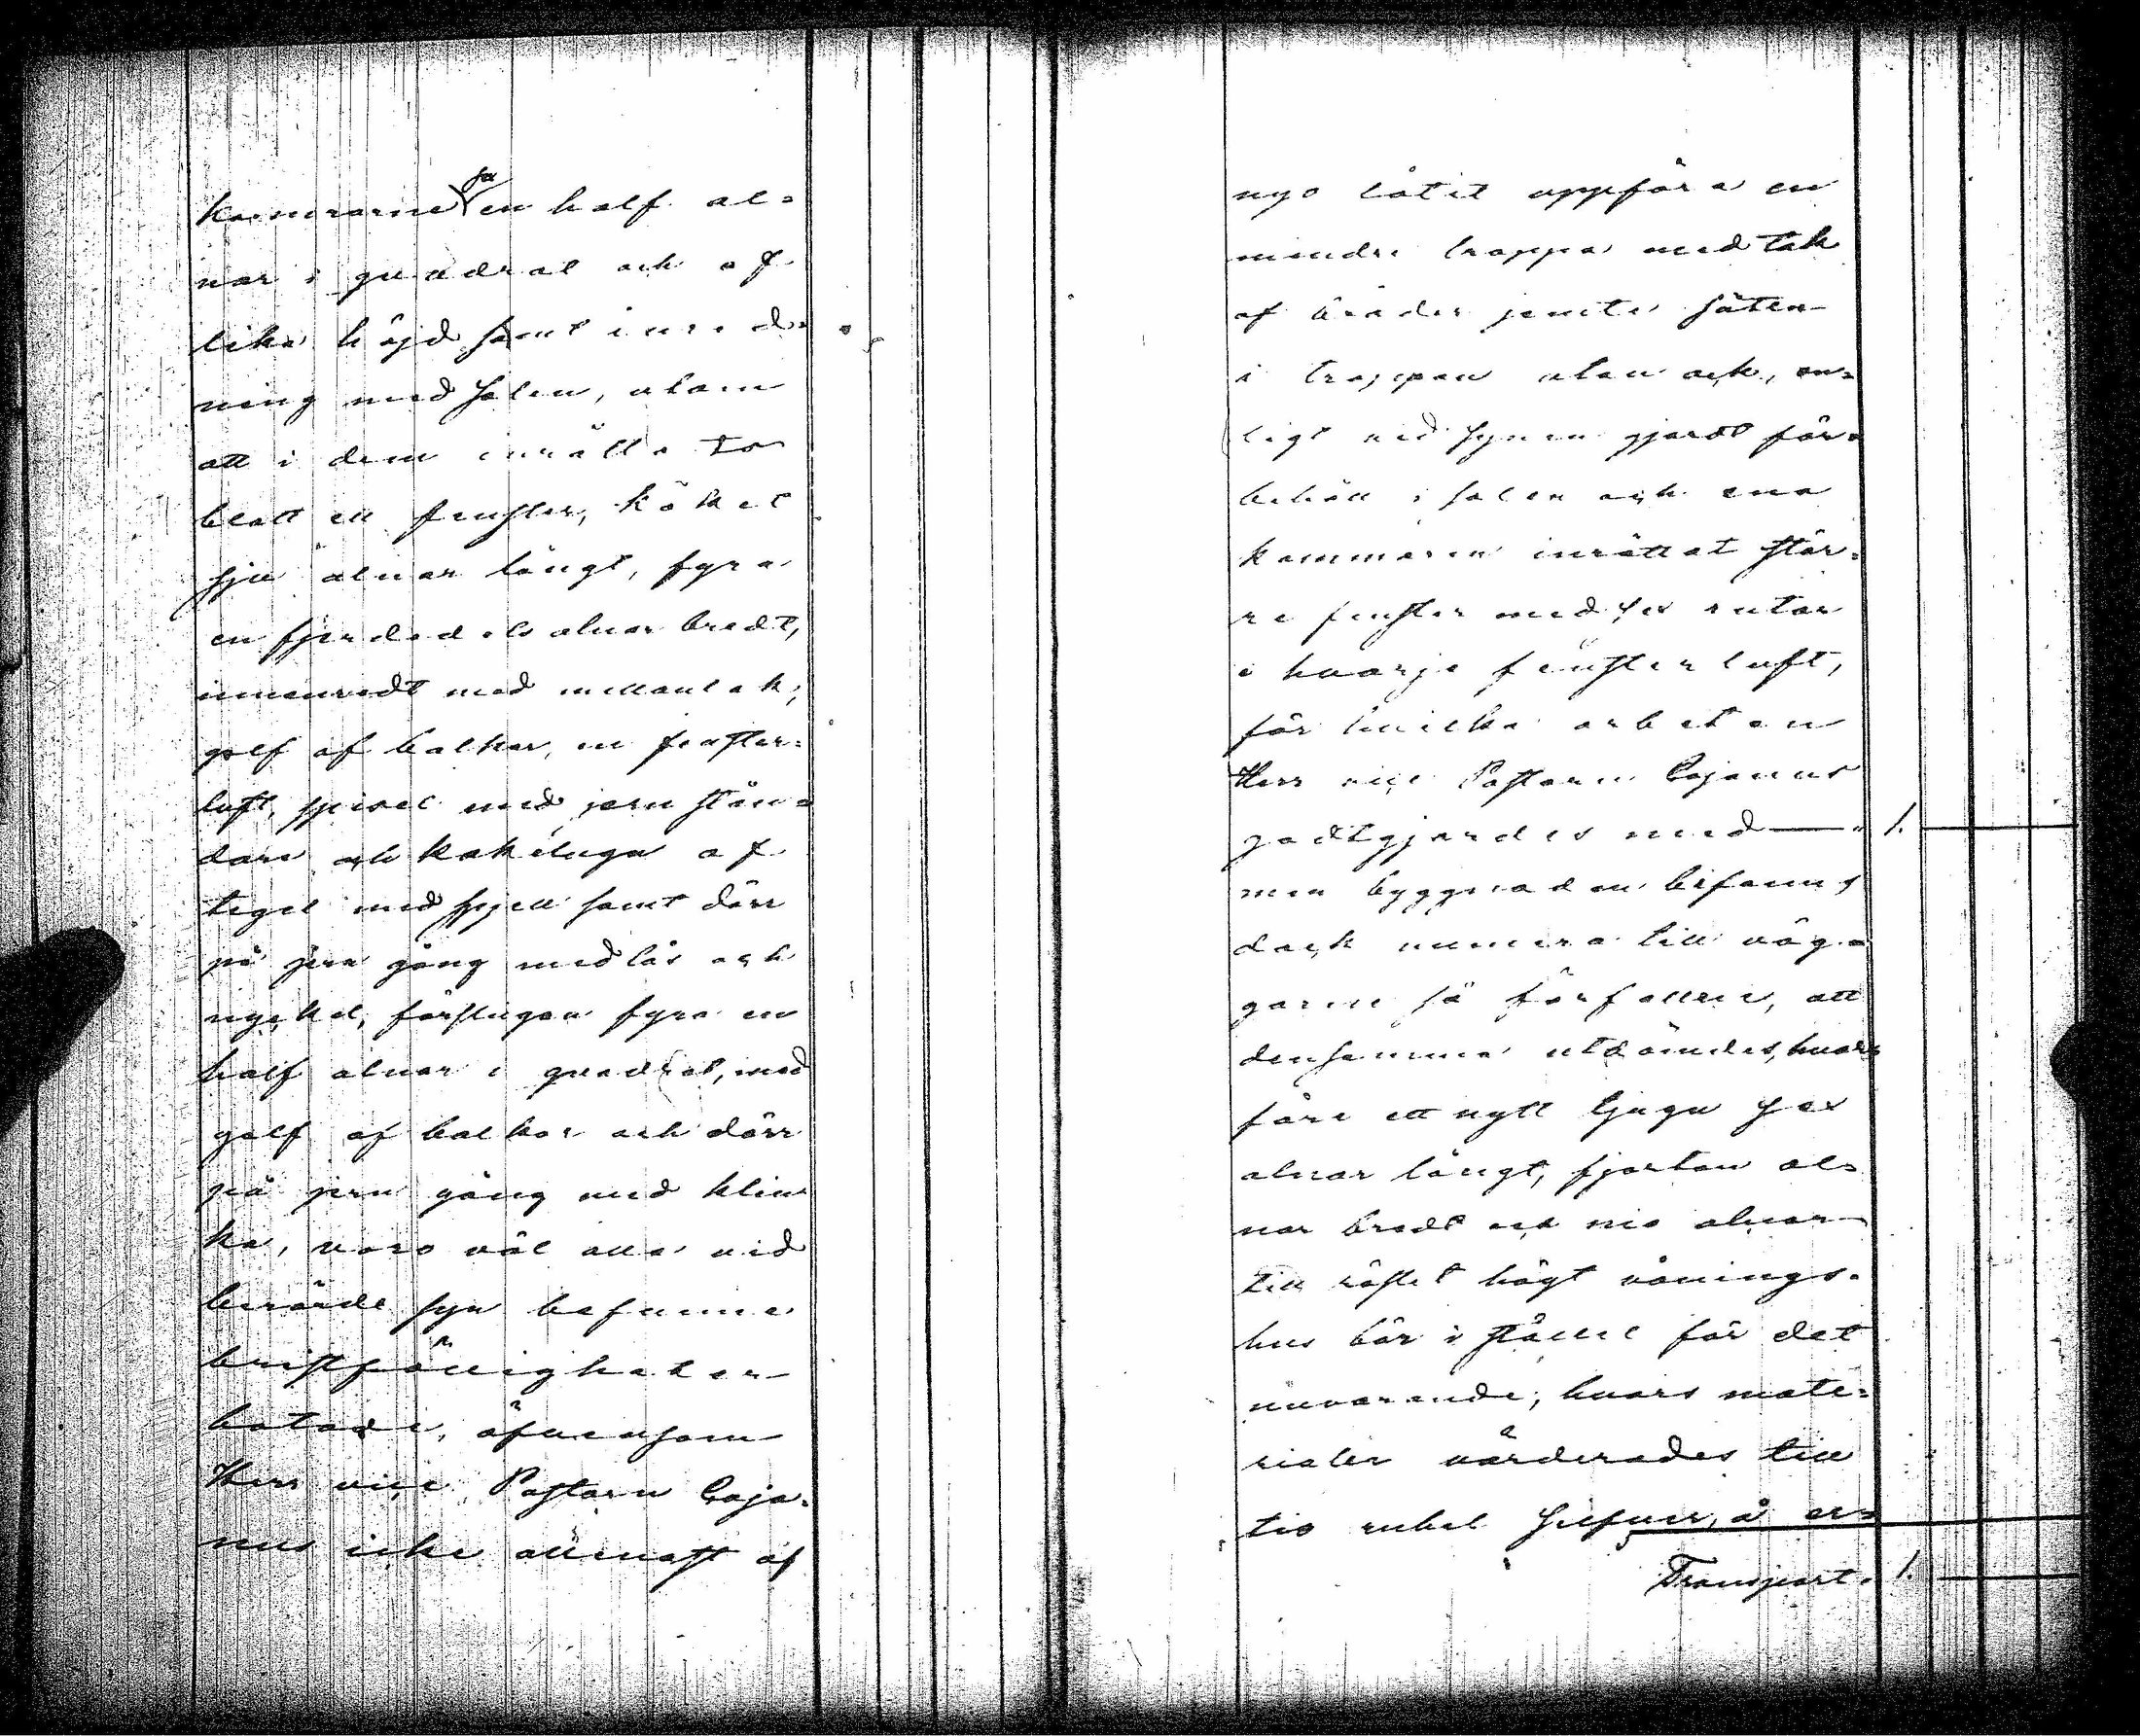 kamrarne sju en half al=
nar i quadrat och af
lika höjd samt inred=
ning med salen, utom
att i dem inrätta to
blott ett fenster, köket
sju alnar långt, fyra
en fjerdedels alnar bredt,
innanredt med mellantak,
golf af balkar, en fenster=
luft, spisel med jern stån=
dare och kakelugn af
tegel med spjell samt dörr
på jern gång med lås och
nyckel, förstugan fyra en
half alnar i quadrat, med
golf af balkar och dörr
på jern gång med klin
ka, voro väl alla vid
berörde syn befunne
bristfälligheter
botade, äfvensom
Herr vice Pastorn Caja=
nus icke allenast af
nyo låtit uppföra en
mindre trappa med tak
af bräder jemte säten
i trappan utan ock, en=
ligt vid synen gjordt för=
behåll i salen och ena
kammaren inrättat stör=
re fenster med sex rutor
i hvarje fensterluft,
för hvilka arbeten
Herr vice Pastorn Cajanus
godtgjordes med — " 1. —
men byggnaden befanns
dock numera till väg=
garne så förfallen, att
densamma utdömdes, hvar=
före ett nytt tjugu sex
alnar långt, fjorton al=
nar bredt och nio alnar
till röstet högt vånings=
hus bör i stället för det
nuvarande, hvars mate=
rialer värderades till
tio rubel silfver, å er=
Transport. 1. —